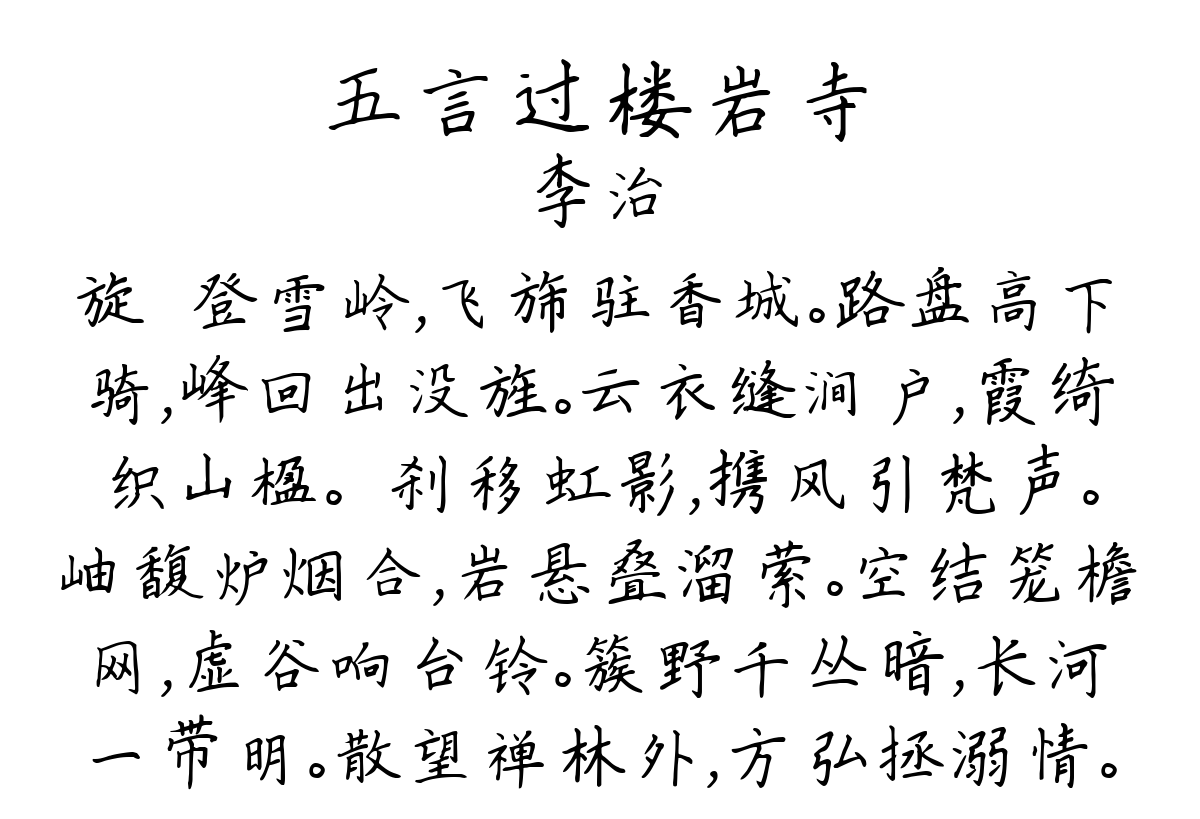 五言过楼岩寺
李治
旋 登雪岭,飞旆驻香城。路盘高下
骑,峰回出没旌。云衣缝涧户,霞绮
织山楹。刹移虹影,携风引梵声。
岫馥炉烟合,岩悬叠溜萦。空结笼檐
网,虚谷响台铃。簇野千丛暗,长河
一带明。散望禅林外,方弘拯溺情。